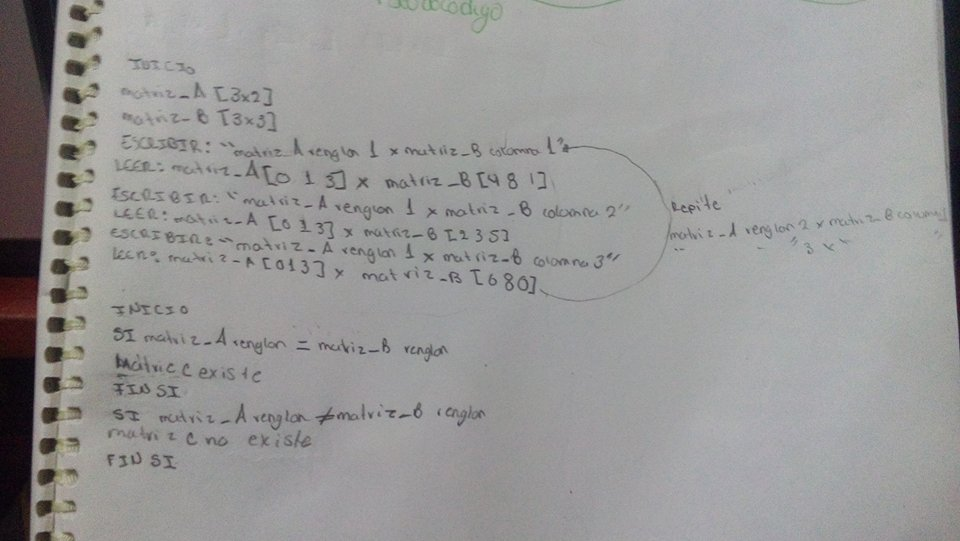 Pseudocodigo
INICIO
matriz_A [3x2]
matriz_B [3x3]
ESCRIBIR: "matriz_A renglon 1 x matriz_B columna 1"
LEER: matriz_A[0 1 3] x matriz_B [4 8 1]
ESCRIBIR: "matriz_A renglon 1 x matriz_B columna 2"
LEER: matriz_A [0 1 3] x matriz_B [2 3 5]
ESCRIBIR: "matriz_A renglon 1 x matriz_B columna 3"
LEER: matriz_A [0 1 3] x matriz_B [6 8 0]
Repite
matriz_A renglon 2 x matriz_B columna
" " " 3 x " "
INICIO
SI matriz_A renglon = matriz_B renglon
Matriz C existe
FIN SI
SI matriz_A renglon ≠ matriz_B renglon
matriz C no existe
FIN SI